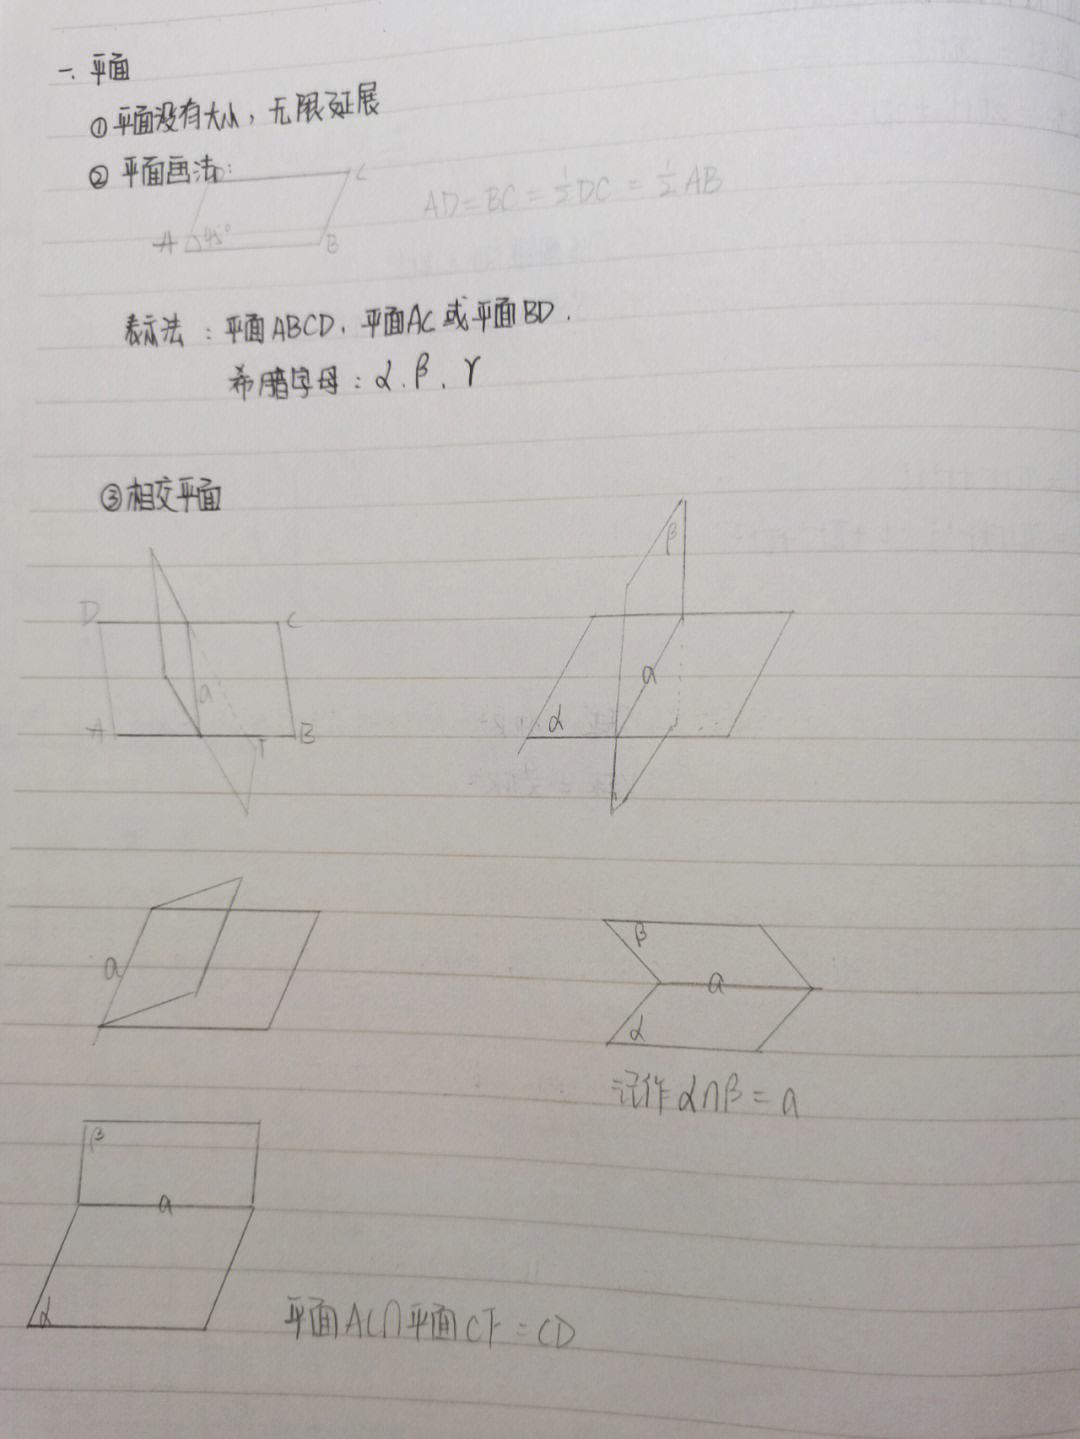 一. 平面
①平面没有大小，无限延展
② 平面画法：
D C
AD=BC=½DC=½AB
A 45° B
表示法：平面ABCD、平面AC或平面BD.
希腊字母：α、β、γ
③相交平面
β
D C
a
a
α
A B
β
a
a
α
记作 α∩β=a
β
a
α
平面AC∩平面CF=CD